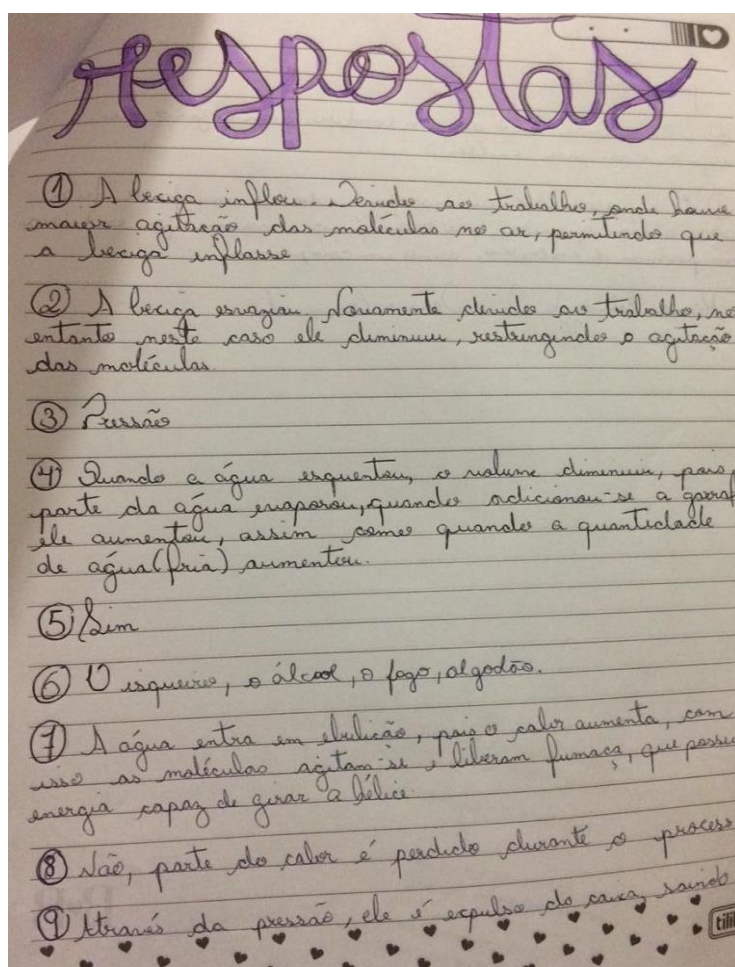 respostas
① A beciga inflou. Devido ao trabalho, onde houve
maior agitação das moléculas no ar, permitindo que
a beciga inflasse
② A beciga esvaziou. Novamente devido ao trabalho, no
entanto neste caso ele diminuiu, restringindo a agitação
das moléculas
③ Pressão
④ Quando a água esquentou, o volume diminuiu, pois,
parte da água evaporou, quando adicionou-se a garraf
ele aumentou, assim como quando a quantidade
de água (fria) aumentou.
⑤ Sim
⑥ O isqueiro, o álcool, o fogo, algodão.
⑦ A água entra em ebulição, pois o calor aumenta, com
isso as moléculas agitam-se e liberam fumaça, que possu
energia capaz de girar a hélice.
⑧ Não, parte do calor é perdido durante o process
⑨ Através da pressão, ele é expulso do caixa, saindo
tili